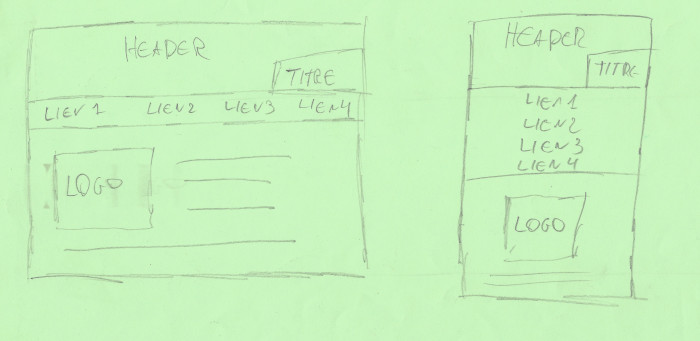 HEADER
TITRE
LIEN 1 LIEN 2 LIEN 3 LIEN 4
LOGO
HEADER
TITRE
LIEN 1
LIEN 2
LIEN 3
LIEN 4
LOGO